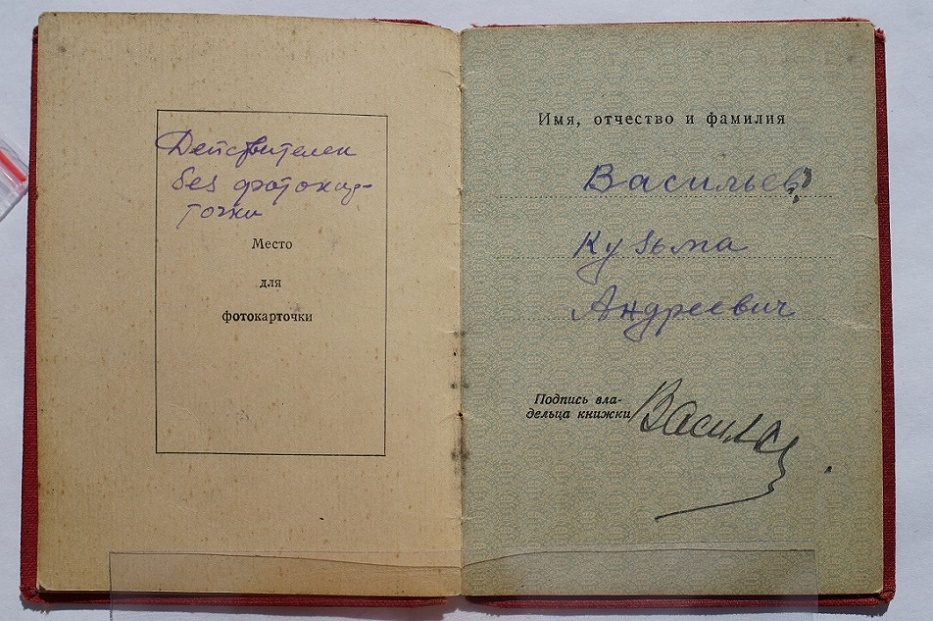 Действителен
без фотокар-
точки
Место
для
фотокарточки
Имя, отчество и фамилия
Васильев
Кузьма
Андреевич
Подпись вла-
дельца книжки